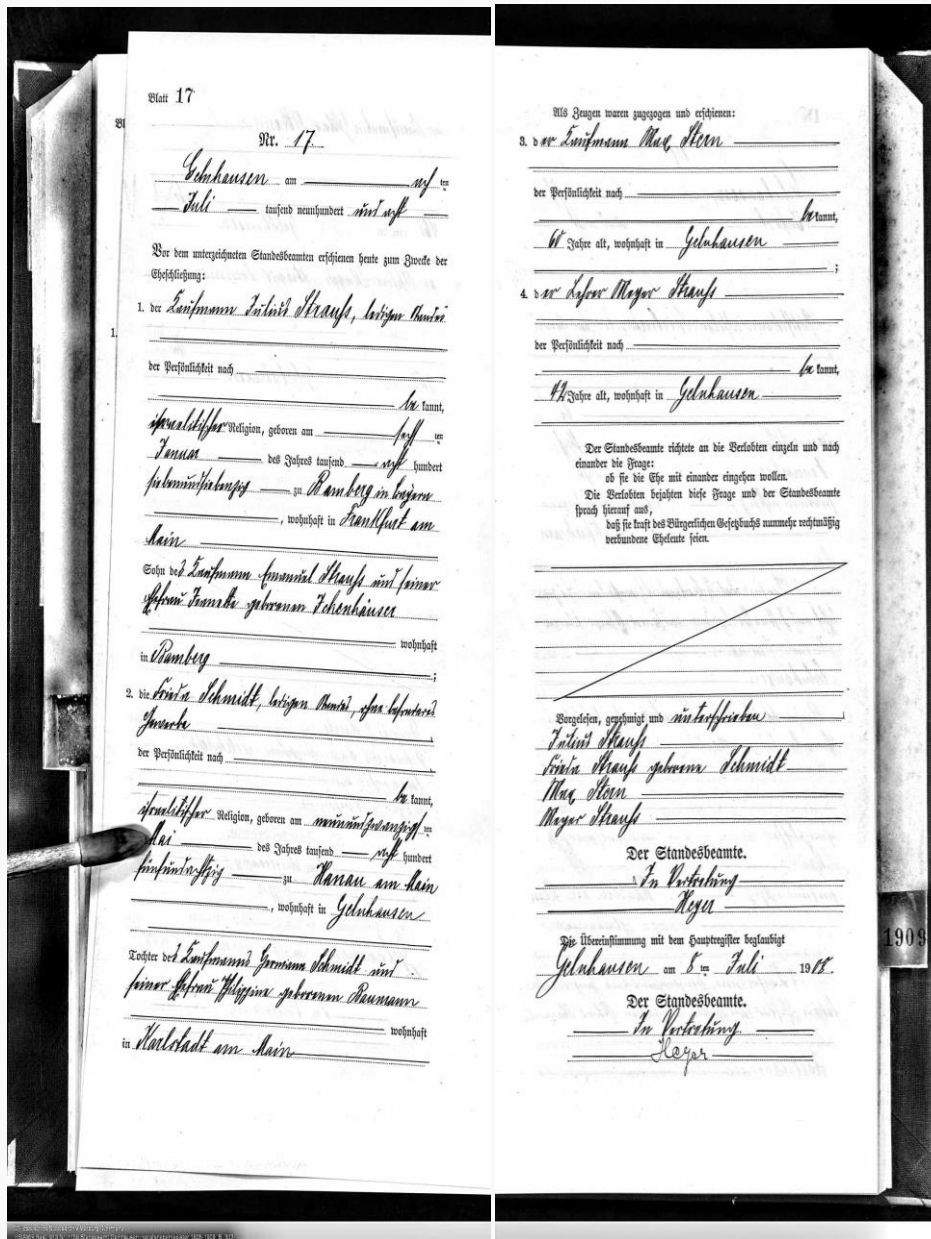 Blatt 17
Nr. 17.
Gelnhausen am acht ten
Juli tausend neunhundert und acht
Vor dem unterzeichneten Standesbeamten erschienen heute zum Zwecke der
Eheschließung:
1. der Kaufmann Julius Strauß, ledigen Standes
der Persönlichkeit nach
be kannt,
israelitischer Religion, geboren am ten
Januar des Jahres tausend acht hundert
siebenundsiebenzig zu Bamberg in Bayern
, wohnhaft in Frankfurt am
Main
Sohn des Kaufmann Emanuel Strauß und seiner
Ehefrau Jeanette geborenen Ichenhäuser
wohnhaft
in Bamberg ;
2. die Frieda Schmidt, ledigen Standes, ohne besonderes
Gewerbe
der Persönlichkeit nach
be kannt,
israelitischer Religion, geboren am neunundzwanzigsten
Mai des Jahres tausend acht hundert
fünfundachtzig zu Hanau am Main
, wohnhaft in Gelnhausen
Tochter des Kaufmanns Hermann Schmidt und
seiner Ehefrau Philippine geborenen Baumann
wohnhaft
in Karlstadt am Main
Als Zeugen waren zugezogen und erschienen:
3. der Kaufmann Max Stern
der Persönlichkeit nach
be kannt,
60 Jahre alt, wohnhaft in Gelnhausen
;
4. der Lehrer Meyer Strauß
der Persönlichkeit nach
be kannt,
42 Jahre alt, wohnhaft in Gelnhausen
Der Standesbeamte richtete an die Verlobten einzeln und nach
einander die Frage:
ob sie die Ehe mit einander eingehen wollen.
Die Verlobten bejahten diese Frage und der Standesbeamte
sprach hierauf aus,
daß sie kraft des Bürgerlichen Gesetzbuchs nunmehr rechtmäßig
verbundene Eheleute seien.
Vorgelesen, genehmigt und unterschrieben
Julius Strauß
Frieda Strauß geborene Schmidt
Max Stern
Meyer Strauß
Der Standesbeamte.
In Vertretung
Heyer
Die Übereinstimmung mit dem Hauptregister beglaubigt
Gelnhausen am 8 ten Juli 1908.
Der Standesbeamte.
In Vertretung
Heyer
1909